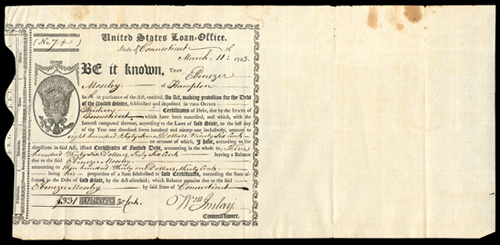 United States Loan-Office.
(No. 74)
State of Connecticut
March 11th 1793.
BE it known, THAT Ebenezer
Mosley of Hampton
hath in pursuance of the Act, entitled, An Act, making provision for the Debt
of the United States, subscribed and deposited in this OFFICE
Certificates of Debt, due by the STATE of
Connecticut which have been cancelled, and which, with the
Interest computed thereon, according to the Laws of said State, to the last day
of the Year one thousand seven hundred and ninety-one inclusively, amount to
eight hundred
on account of which, I have, according to the
directions in said Act, issued Certificates of Funded Debt, amounting in the whole to,
Hundred Thirty Six Dollars, Sixty Six Cents leaving a Balance
due to the said Ebenezer Mosley
amounting to three hundred Thirty one Dollars, thirty Cents
being his proportion of a Sum subscribed in said Certificates, exceeding the Sum
in the Debt of said State, by the Act aforesaid; which Balance remains due to the said
Ebenezer Mosley by said State of Connecticut
331 DOLLARS 30 Cents.
Wm. Imlay
Commissioner.